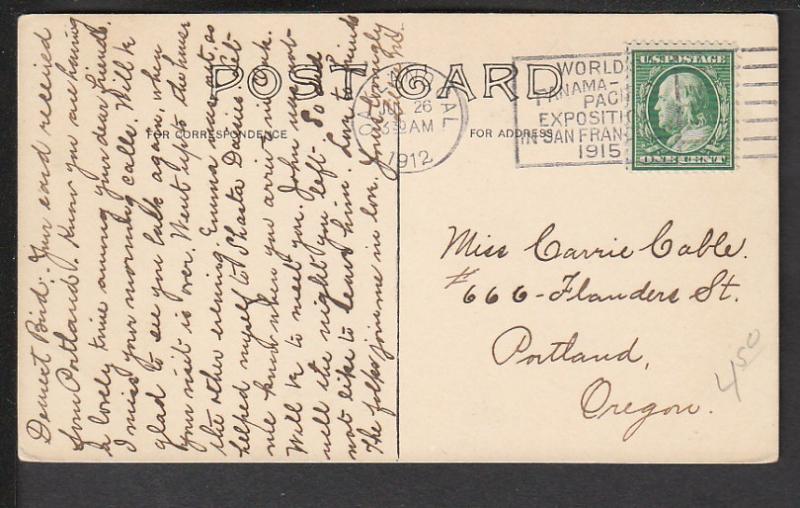 POST CARD
FOR CORRESPONDENCE
FOR ADDRESS
26
30 AM
1912
WORLD
PANAMA-
PAC
EXPOSITI
IN SAN FRAN
1915
U.S. POSTAGE
ONE CENT
Miss Carrie Cable.
# 666-Flanders St.
Portland,
Oregon.
4 50
Dearest Bird:- Your card received
from Portland. Know you are having
a lovely time among your dear friends.
I miss your morning calls. Will be
glad to see you back again, when
your visit is over. Went up to the house
the other evening. Emma was out, so
helped myself to Shasta Daisies. Let
me know when you arrive in Oak.
Will be to meet you. John was not
well the night you left- So did
not like to leave him. Love to friends
The folks join me in love. Yours lovingly